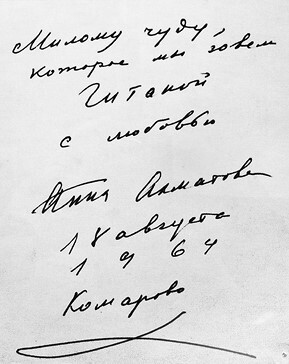 Милому чуду,
которое мы зовем
Гитаной
с любовью
Анна Ахматова
18 августа
1964
Комарово